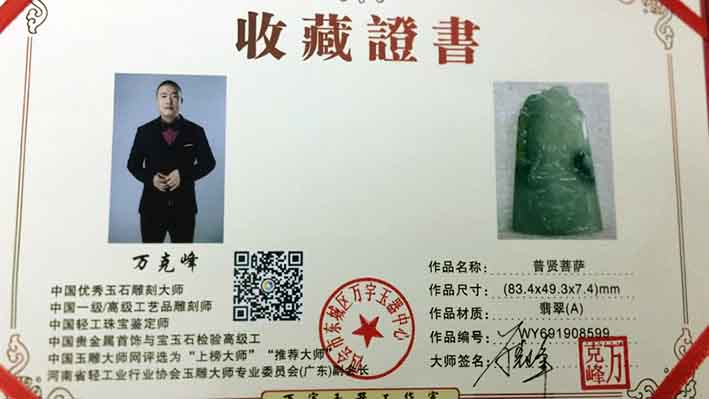 收藏證書
万克峰
中国优秀玉石雕刻大师
中国一级/高级工艺品雕刻师
中国轻工珠宝鉴定师
中国贵金属首饰与宝玉石检验高级工
中国玉雕大师网评选为“上榜大师”“推荐大师”
河南省轻工业行业协会玉雕大师专业委员会(广东)副会长
四会市东城区万宇玉器中心
作品名称: 普贤菩萨
作品尺寸: (83.4x49.3x7.4)mm
作品材质: 翡翠(A)
作品编号: WY691908599
大师签名: 万克峰
万克峰